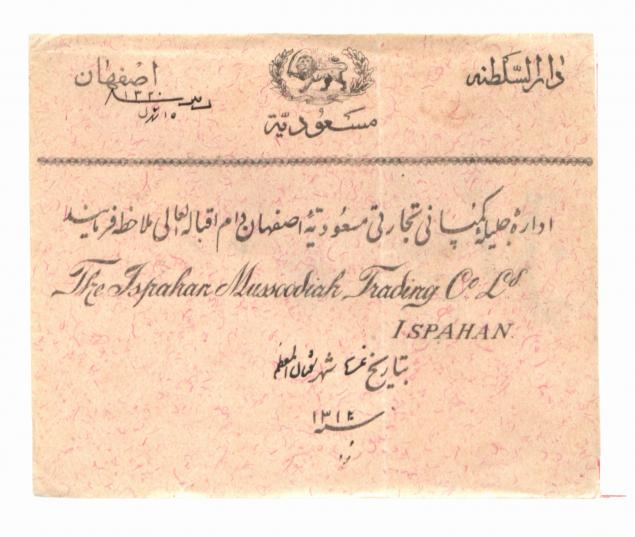 دارالسّلطنه
اصفهان
مسعودیّة
اداره جلیله کمپانی تجارتی مسعودیّهٔ اصفهان دام اقباله العالی ملاحظه فرمایند
The Ispahan Mussoodiah Trading Co. Ld.
ISPAHAN.
بتاریخ غره شهر شوال المعظم
سنه